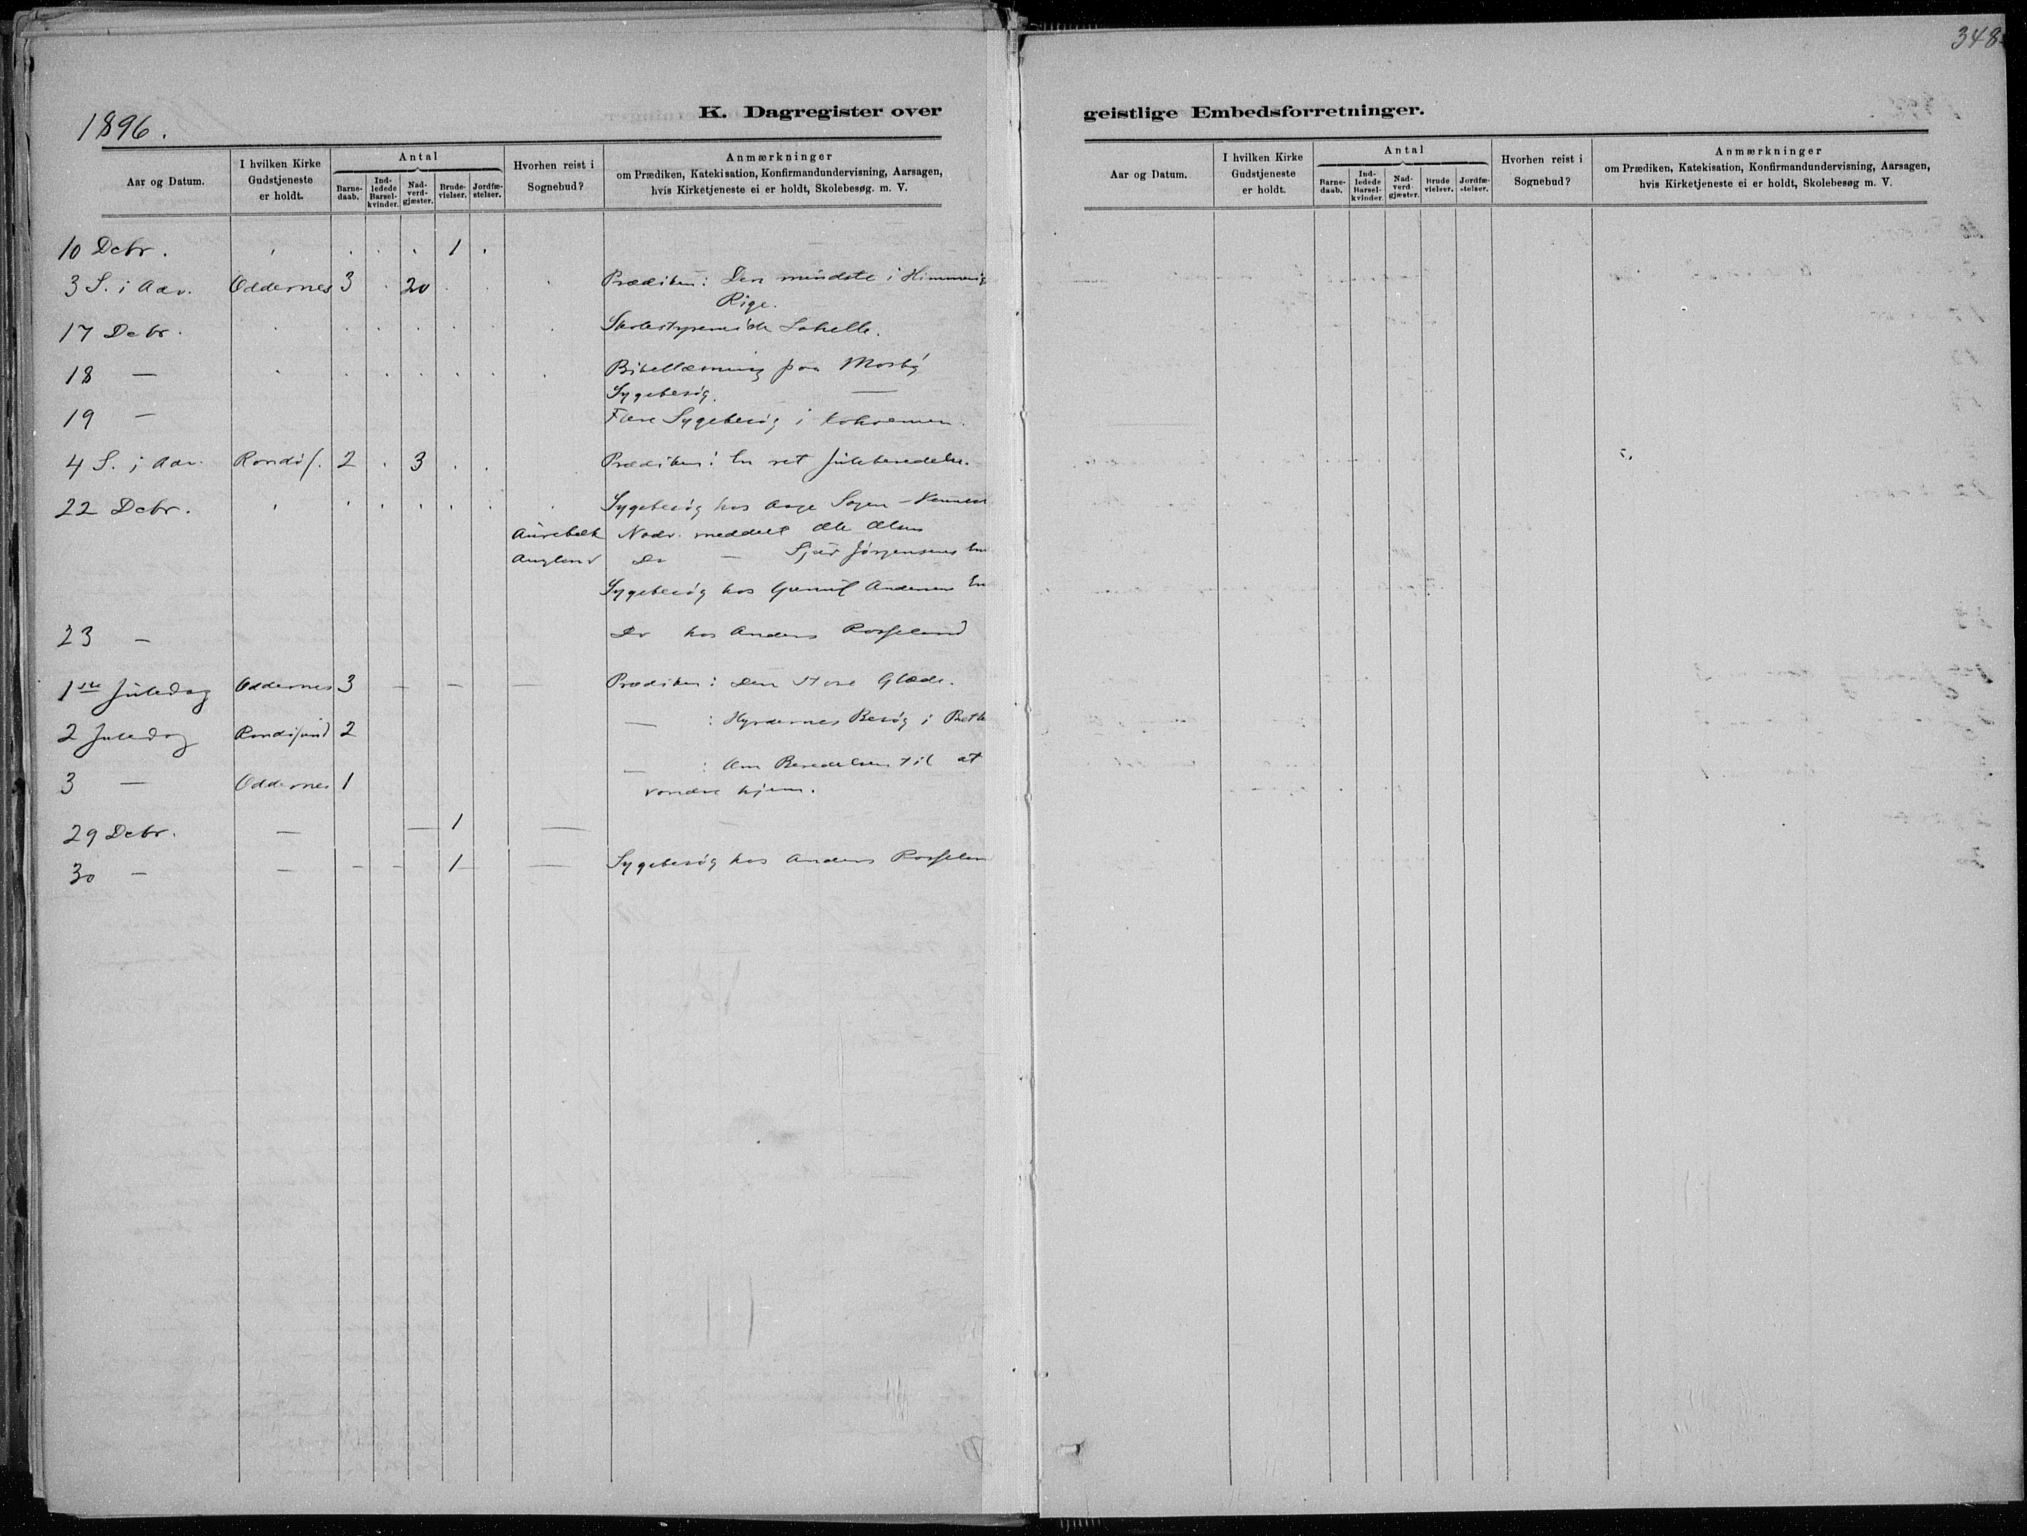 1896.
K. Dagregister over
Aar og Datum.
I hvilken Kirke
Gudstjeneste
er holdt.
Antal
Barne-
daab.
Ind-
ledede
Barsel-
kvinder.
Nad-
verd-
gjæster.
Brude-
vielser.
Jordfæ-
stelser.
Hvorhen reist i
Sognebud?
Anmærkninger
om Prædiken, Katekisation, Konfirmandundervisning, Aarsagen,
hvis Kirketjeneste ei er holdt, Skolebesøg. m. V.
10 Debr. 1
3 S. i Adv. Oddernes 3 20 Prædiken: Den mindste i Himmerig
Rige.
17 Debr.
18 — Bibellæsning paa Mosby
Sygebesøg. —
19 — Flere Sygebesøg i
4 S. i Adv. 2 3 Prædiken: En ret Juleberedelse.
22 Debr. Sygebesøg hos Aage
Nadv. meddelt Ole Olsen
Augland Do — Jørgensens
Sygebesøg hos Andersens
23 — Do hos Anders Rosseland
1ste Juledag Oddernes 3 — — — Prædiken: Den store Glæde.
2 Juledag Randøsund 2 — : Hyrdernes Besøg i Beth
3 — Oddernes 1 — : Om Beredelsen til at
vandre hjem.
29 Debr. — — 1 — —
30 — — — — 1 — Sygebesøg hos Anders Rosselan
348
geistlige Embedsforretninger.
Aar og Datum.
I hvilken Kirke
Gudstjeneste
er holdt.
Antal
Barne-
daab.
Ind-
ledede
Barsel-
kvinder.
Nad-
verd-
gjæster.
Brude
vielser.
Jordfæ-
stelser.
Hvorhen reist i
Sognebud?
Anmærkninger
om Prædiken, Katekisation, Konfirmandundervisning, Aarsagen,
hvis Kirketjeneste ei er holdt, Skolebesøg m. V.